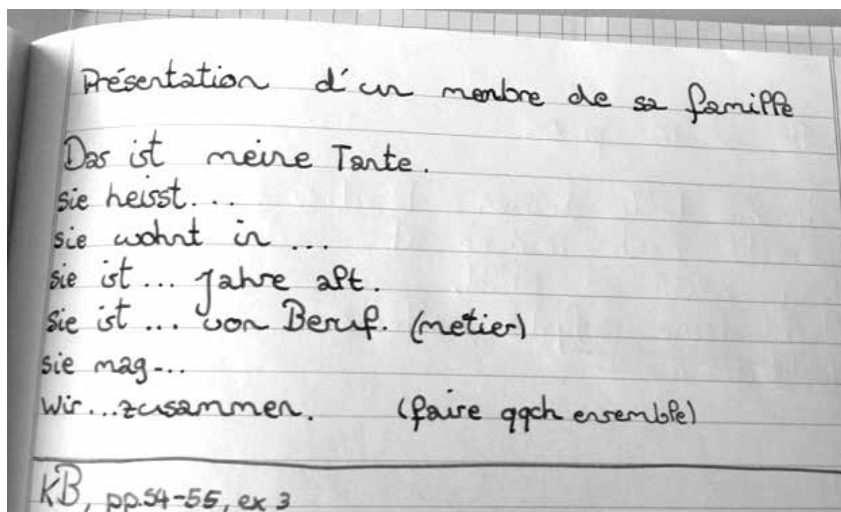 Présentation d'un menbre de sa famille
Das ist meine Tante.
sie heisst...
sie wohnt in ...
sie ist ... Jahre alt.
sie ist ... von Beruf. (metier)
sie mag...
wir...zusammen. (faire qqch ensemble)
KB, pp.54-55, ex 3